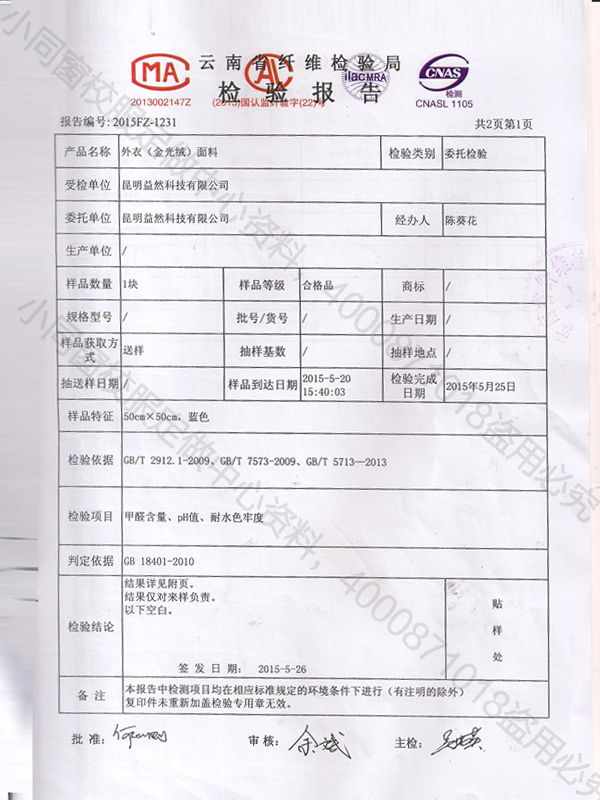 云南省纤维检验局
检验报告
MA
2013002147Z
AL
(2013)国认监认字(22)号
ilac-MRA
CNAS
检测
CNASL 1105
报告编号：2015FZ-1231 共2页第1页
产品名称 外衣（金光绒）面料 检验类别 委托检验
受检单位 昆明益然科技有限公司
委托单位 昆明益然科技有限公司 经办人 陈葵花
生产单位 /
样品数量 1块 样品等级 合格品 商标 /
规格型号 / 批号/货号 / 生产日期 /
样品获取方式 送样 抽样基数 / 抽样地点 /
抽送样日期 / 样品到达日期 2015-5-20 15:40:03 检验完成日期 2015年5月25日
样品特征 50cm×50cm．蓝色
检验依据 GB/T 2912.1-2009、GB/T 7573-2009、GB/T 5713—2013
检验项目 甲醛含量、pH值、耐水色牢度
判定依据 GB 18401-2010
检验结论
结果详见附页。
结果仅对来样负责。
以下空白。
签发日期： 2015-5-26
贴样处
备注
本报告中检测项目均在相应标准规定的环境条件下进行（有注明的除外）
复印件未重新加盖检验专用章无效。
批准： 审核： 主检：
小同窗校服定做中心资料，4000871018盗用必究
小同窗校服定做中心资料，4000871018盗用必究